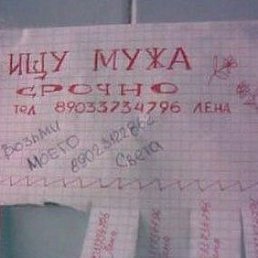 ИЩУ МУЖА
СРОЧНО
тел 89033734796 ЛЕНА
Возьми
МОЕГО
Света